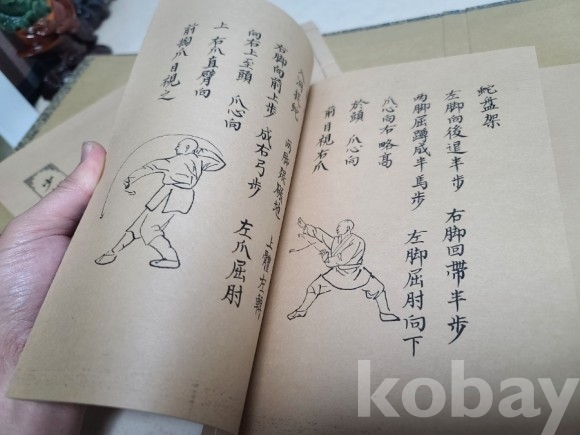 蛇盤架
左脚向後退半步 右脚回帶半步
兩脚屈蹲成半馬步 左脚屈肘向下
爪心向右略高
於頭 爪心向
前目視右爪
兩脚 地 上 左
右脚向前上步 成右弓步 左爪屈肘
向右上至頭 爪心向
上 右爪直臂向
前 爪目視之
kobay